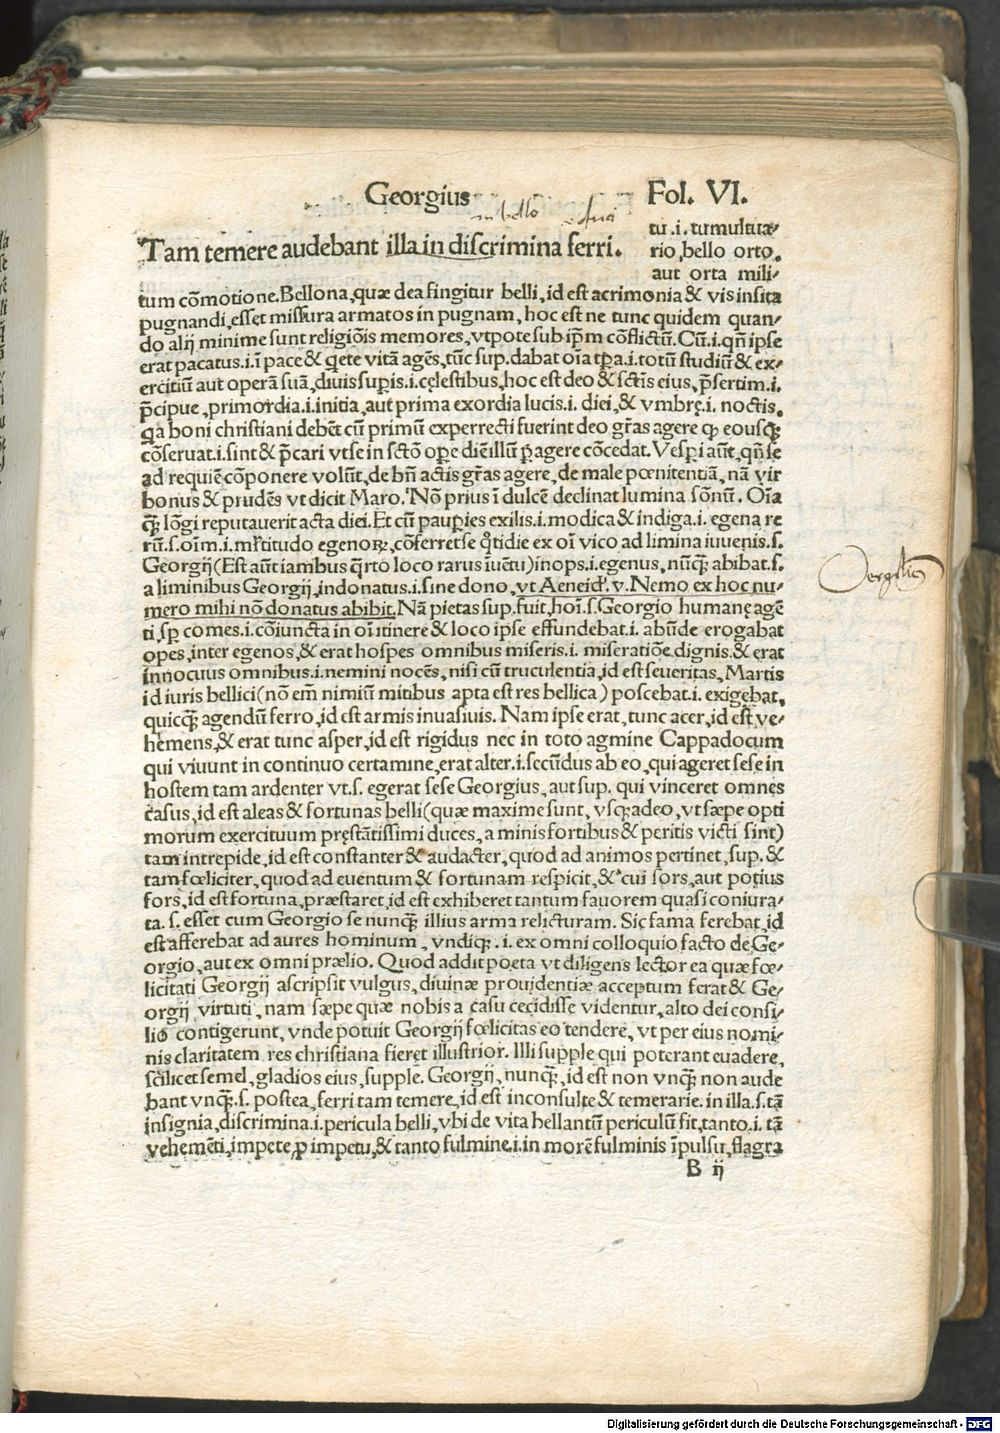 Georgius
Fol. VI.
in bello
Tam temere audebant illa in discrimina ferri.
tu .i. tumultua⸗
rio, bello orto,
aut orta mili⸗
tum cōmotione. Bellona, quæ dea fingitur belli, id est acrimonia & vis insita
pugnandi, esset missura armatos in pugnam, hoc est ne tunc quidem quan⸗
do alij minime sunt religiōis memores, vtpote sub ip̄m cōflictū. Cū .i. qn̄ ipse
erat pacatus .i. ī pace & q̄ete vitā agēs, tūc sup. dabat oīa tp̄a .i. totū studiū & ex⸗
ercitiū aut operā suā, diuis supis .i. cęlestibus, hoc est deo & sctīs eius, p̄sertim .i.
p̄cipue, primordia .i. initia, aut prima exordia lucis .i. diei, & vmbrę .i. noctis.
q̄a boni christiani debēt cū primū experrecti fuerint deo gr̄as agere qꝫ eousqꝫ
cōseruat .i. sint & p̄cari vt se in sctō ope diē illū pagere cōcedat. Vesperi aūt, qn̄ se
ad requiē cōponere volūt, de bn̄ actis gr̄as agere, de male pœnitentiā, nā vir
bonus & prudēs vt dicit Maro. Nō prius ī dulcē declinat lumina sōnū. Oīa
qꝫ lōgi reputauerit acta diei. Et cū paupies exilis .i. modica & indiga .i. egena re
rū .s. oīm .i. mr̄titudo egenoꝝ, cōferret se q̄tidie ex oī vico ad limina iuuenis .s.
Georgij (Est aūt iambus q̄rto loco rarus īuētu) inops .i. egenus, nūqꝫ abibat .s.
a liminibus Georgij, indonatus .i. sine dono, vt Aeneid. v. Nemo ex hoc nu⸗
mero mihi nō donatus abibit. Nā pietas sup. fuit, hoī .s. Georgio humanę agē
ti, sp comes .i. cōiuncta in oī itinere & loco ipse effundebat .i. abūde erogabat
opes, inter egenos, & erat hospes omnibus miseris .i. miseratiōe dignis. & erat
innocuus omnibus .i. nemini nocēs, nisi cū truculentia, id est seueritas, Martis
id iuris bellici (nō em̄ nimiū mitibus apta est res bellica) poscebat .i. exigebat,
quicqꝫ agendū ferro, id est armis inuasiuis. Nam ipse erat, tunc acer, id est ve⸗
hemens, & erat tunc asper, id est rigidus nec in toto agmine Cappadocum
qui viuunt in continuo certamine, erat alter .i. secūdus ab eo, qui ageret sese in
hostem tam ardenter vt .s. egerat sese Georgius, aut sup. qui vinceret omnes
casus, id est aleas & fortunas belli (quæ maxime sunt, vsqꝫ adeo, vt sæpe opti
morum exercituum pręstātissimi duces, a minis fortibus & peritis victi sint)
tam intrepide, id est constanter & audacter, quod ad animos pertinet, sup. &
tam fœliciter, quod ad euentum & fortunam respicit, & cui sors, aut potius
fors, id est fortuna, præstaret, id est exhiberet tantum fauorem quasi coniura⸗
ta .s. esset cum Georgio se nunqꝫ illius arma relicturam. Sic fama ferebat, id
est afferebat ad aures hominum, vndiqꝫ .i. ex omni colloquio facto de Ge⸗
orgio, aut ex omni prælio. Quod addit poeta vt diligens lector ea quæ fœ⸗
licitati Georgij ascripsit vulgus, diuinæ prouidentiæ acceptum ferat & Ge⸗
orgij virtuti, nam sæpe quæ nobis a casu cecidisse videntur, alto dei consi⸗
lio contigerunt, vnde potuit Georgij fœlicitas eo tendere, vt per eius nomi⸗
nis claritatem res christiana fieret illustrior. Illi supple qui poterant euadere,
scilicet semel, gladios eius, supple. Georgij, nunqꝫ, id est non vnqꝫ non aude
bant vnqꝫ .s. postea, ferri tam temere, id est inconsulte & temerarie. in illa .s. tā
insignia, discrimina .i. pericula belli, vbi de vita bellantū periculū fit, tanto .i. tā
vehemēti, impete ꝓ impetu, & tanto fulmine .i. in morē fulminis īpulsu, flagra
B ij
Digitalisierung gefördert durch die Deutsche Forschungsgemeinschaft - DFG